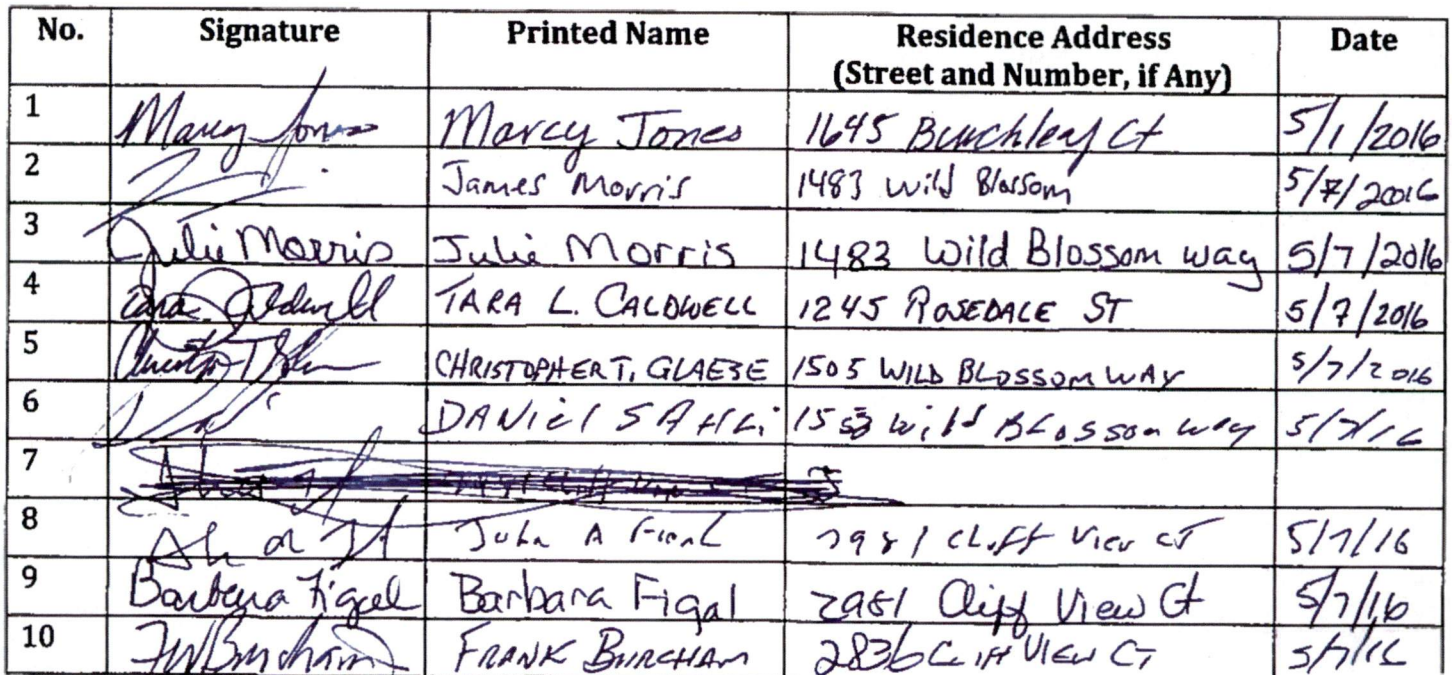 No. Signature Printed Name Residence Address Date
(Street and Number, if Any)
1 Marcy Jones Marcy Jones 1645 Burchleaf Ct 5/1/2016
2 James Morris 1483 Wild Blossom 5/7/2016
3 Julie Morris Julie Morris 1483 Wild Blossom way 5/7/2016
4 Tara Caldwell TARA L. CALDWELL 1245 ROSEDALE ST 5/7/2016
5 CHRISTOPHER T. GLAESE 1505 WILD BLOSSOM WAY 5/7/2016
6 DANIEl SAHLi Wild BLossom way 5/7/16
7
8 John A 2981 Cliff View CT 5/7/16
9 Barbara Figal Barbara Figal 2981 Cliff View Ct 5/7/16
10 FW Burcham FRANK BURCHAM 2836 Cliff View CT 5/7/16